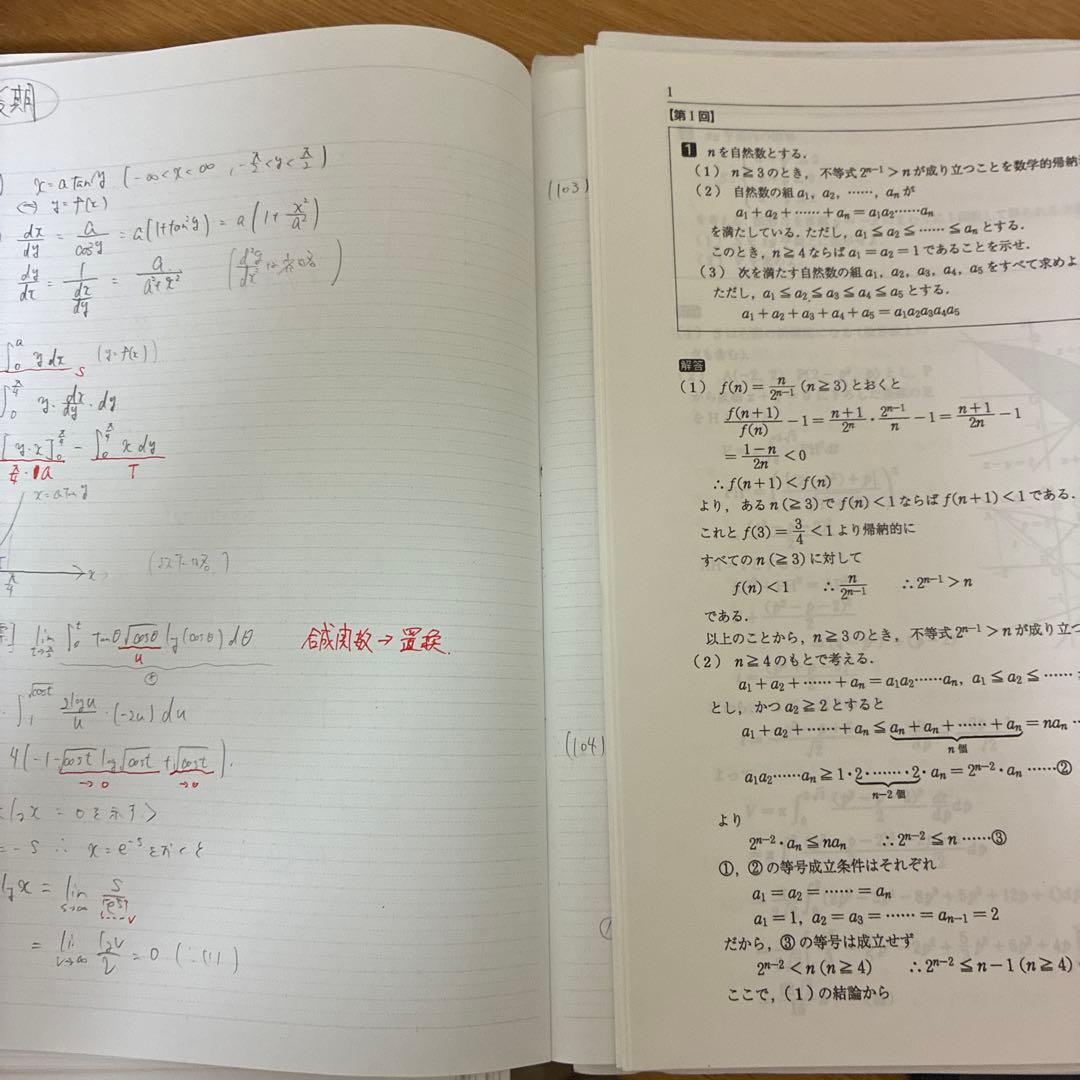 期
x = a tan y (-∞<x<∞, -π/2<y<π/2)
⇔ y = f(x)
dx/dy = a/cos²y = a(1+tan²y) = a(1+x²/a²)
dy/dx = 1/(dx/dy) = a/(a²+x²)
∫₀ᵃ y dx (y=f(x))
S
∫₀^{π/4} y・dx/dy・dy
[y・x]₀^{π/4} − ∫₀^{π/4} x dy
π/4・a T
x = a tan y
x
π/4
lim ∫₀ᵗ tanθ√cosθ log(cosθ) dθ 合成関数→置換.
u
∫₁^{√cost} 2logu/u・(-2u) du
4(-1-√cost log√cost + √cost).
→0 →0
x = 0を示す>
= -s ∴ x = e^{-s}とおくと
x = lim_{s→∞} s/e^s
v
= lim_{v→∞} log v/v = 0 (∵(1))
(103)
(104)
1
【第1回】
1 nを自然数とする.
(1) n≧3のとき,不等式2^{n-1}>nが成り立つことを数学的帰納
(2) 自然数の組a₁, a₂, ……, aₙが
a₁+a₂+……+aₙ=a₁a₂……aₙ
を満たしている.ただし,a₁≦a₂≦……≦aₙとする.
このとき,n≧4ならばa₁=a₂=1であることを示せ.
(3) 次を満たす自然数の組a₁, a₂, a₃, a₄, a₅をすべて求めよ
ただし,a₁≦a₂≦a₃≦a₄≦a₅とする.
a₁+a₂+a₃+a₄+a₅=a₁a₂a₃a₄a₅
解答
(1) f(n)=n/2^{n-1} (n≧3)とおくと
f(n+1)/f(n) −1=(n+1)/2ⁿ・2^{n-1}/n −1=(n+1)/2n −1
=(1−n)/2n <0
∴f(n+1)<f(n)
より,あるn(≧3)でf(n)<1ならばf(n+1)<1である.
これとf(3)=3/4<1より帰納的に
すべてのn(≧3)に対して
f(n)<1 ∴n/2^{n-1} ∴2^{n-1}>n
である.
以上のことから,n≧3のとき,不等式2^{n-1}>nが成り立つ
(2) n≧4のもとで考える.
a₁+a₂+……+aₙ=a₁a₂……aₙ, a₁≦a₂≦……
とし,かつa₂≧2とすると
a₁+a₂+……+aₙ≦aₙ+aₙ+……+aₙ=naₙ
n個
a₁a₂……aₙ≧1・2・……・2・aₙ=2^{n-2}・aₙ……②
n−2個
より
2^{n-2}・aₙ≦naₙ ∴2^{n-2}≦n……③
①,②の等号成立条件はそれぞれ
a₁=a₂=……=aₙ
a₁=1, a₂=a₃=……=aₙ₋₁=2
だから,③の等号は成立せず
2^{n-2}<n(n≧4) ∴2^{n-2}≦n−1(n≧4)
ここで,(1)の結論から